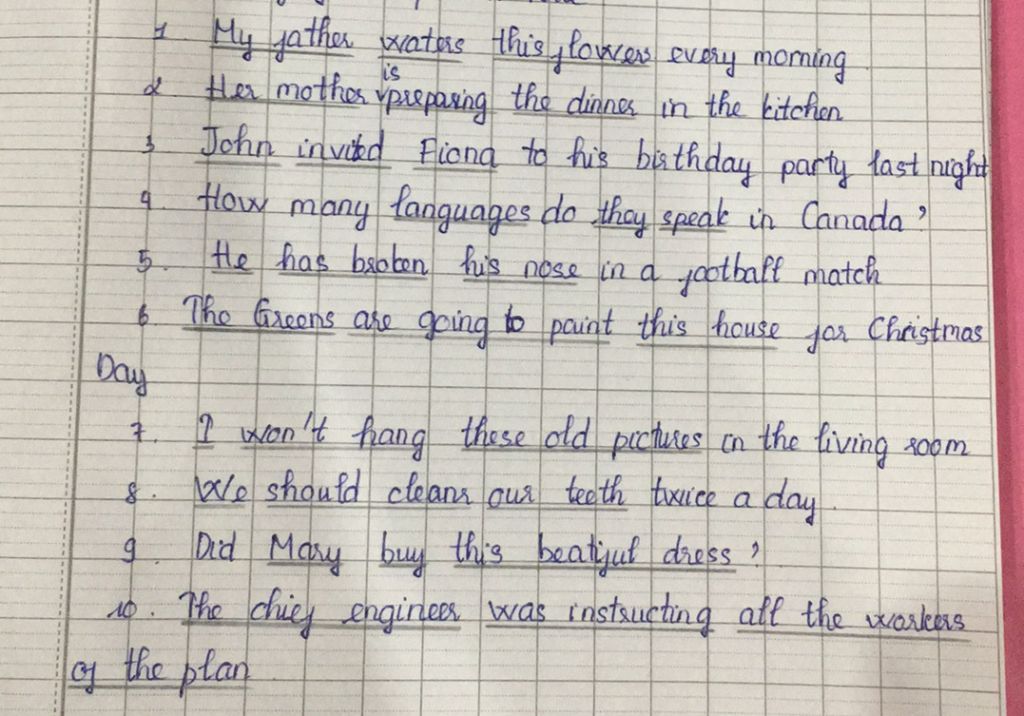 1 My father waters this flowers every morning
2 Her mother is preparing the dinner in the kitchen
3 John invited Fiona to his birthday party last night
4 How many languages do they speak in Canada?
5. He has broken his nose in a football match
6. The Greens are going to paint this house for Christmas
Day
7. I won't hang these old pictures in the living room
8. We should cleans our teeth twice a day.
9 Did Mary buy this beatiful dress?
10. The chief engineer was instructing all the workers
of the plan